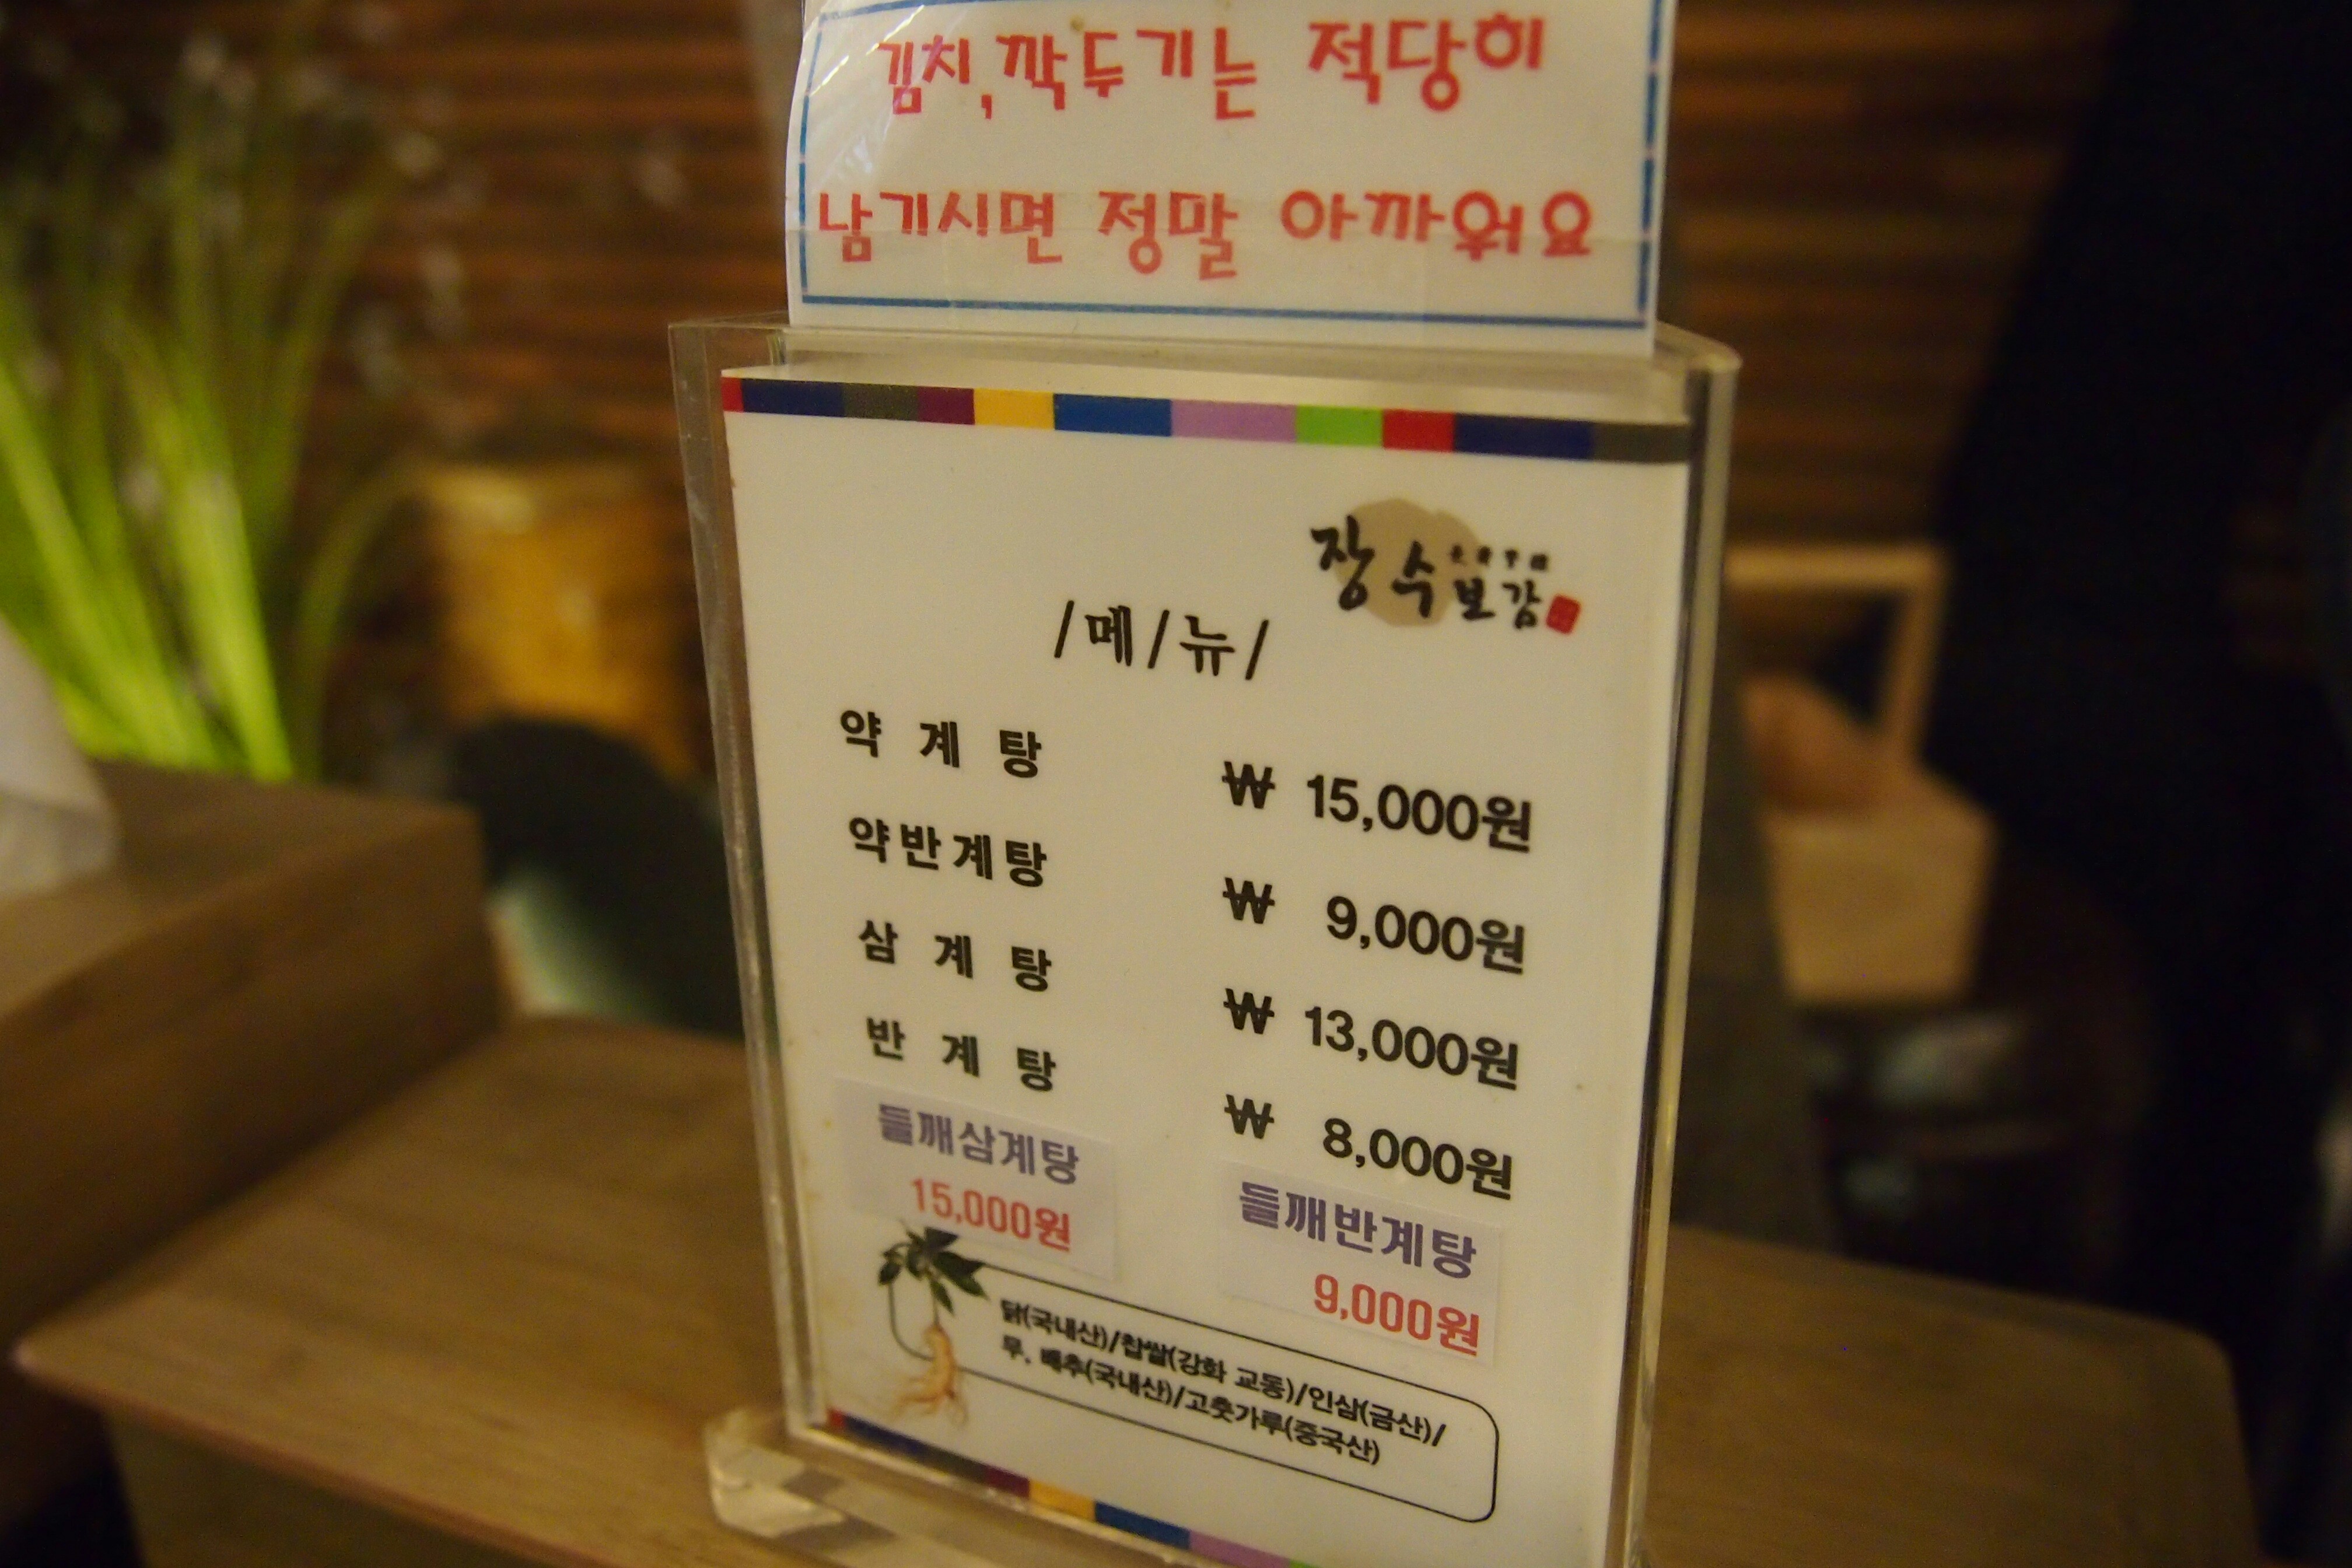 김치,깍두기는 적당히
남기시면 정말 아까워요
장수보감
/메/뉴/
약 계 탕 ₩ 15,000원
약반계탕 ₩ 9,000원
삼 계 탕 ₩ 13,000원
반 계 탕 ₩ 8,000원
들깨삼계탕
15,000원
들깨반계탕
9,000원
닭(국내산)/찹쌀(강화 교동)/인삼(금산)/
무, 배추(국내산)/고춧가루(중국산)